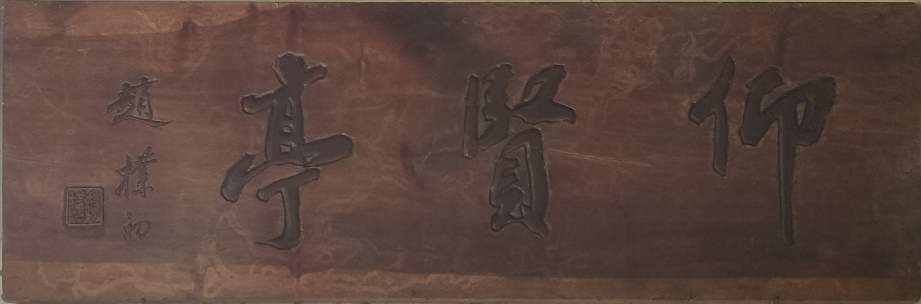 仰賢亭
趙樸初